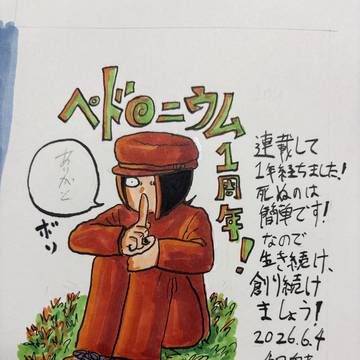 ペドロニウム
1周年!
ありがと
ボソ
連載して
1年経ちました!
死ぬのは
簡単です!
なので
生き続け、
創り続け
ましょう!
2026.6.4